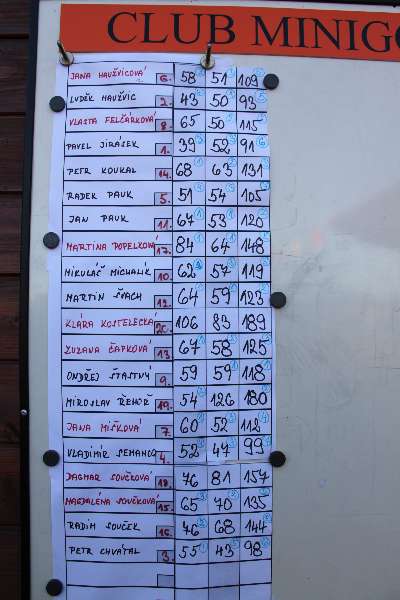 CLUB MINIGO
JANA HAUŽVICOVÁ 6. 58 51 109
LUDĚK HAUŽVIC 2. 43 50 93
VLASTA FELČÁRKOVÁ 8. 65 50 115
PAVEL JIRÁSEK 1. 39 52 91
PETR KOUKAL 14. 68 63 131
RADEK PAUK 5. 51 54 105
JAN PAUK 11. 67 53 120
MARTINA POPELKOVÁ 17. 84 64 148
MIKULÁŠ MICHALÍK 10. 62 57 119
MARTIN ŠVACH 12. 64 59 123
KLÁRA KOSTELECKÁ 20. 106 83 189
ZUZANA ČAPKOVÁ 13. 67 58 125
ONDŘEJ ŠŤASTNÝ 9. 59 59 118
MIROSLAV ŘEHOŘ 19. 54 126 180
JANA MÍŠKOVÁ 7. 60 52 112
VLADIMÍR SEMANCO 4. 52 47 99
DAGMAR SOUČKOVÁ 18. 76 81 157
MAGDALÉNA SOUČKOVÁ 15. 65 70 135
RADIM SOUČEK 16. 76 68 144
PETR CHVÁTAL 3. 55 43 98